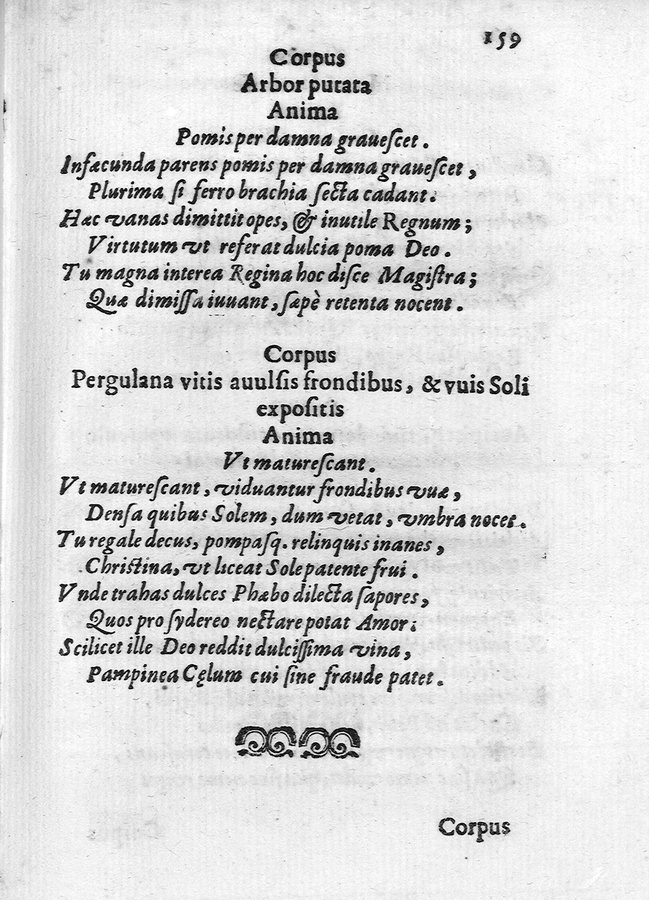 159
Corpus
Arbor putata
Anima
Pomis per damna graueſcet.
Infæcunda parens pomis per damna graueſcet,
Plurima ſi ferro brachia ſecta cadant.
Hæc vanas dimittit opes, & inutile Regnum;
Virtutum vt referat dulcia poma Deo.
Tu magna interea Regina hoc diſce Magiſtra;
Quæ dimiſſa iuuant, ſæpè retenta nocent.
Corpus
Pergulana vitis auulſis frondibus, & vuis Soli
expoſitis
Anima
Vt matureſcant.
Vt matureſcant, viduantur frondibus vuæ,
Denſa quibus Solem, dum vetat, vmbra nocet.
Tu regale decus, pompaſq. relinquis inanes,
Chriſtina, vt liceat Sole patente frui.
Vnde trahas dulces Phæbo dilecta ſapores,
Quos pro ſydereo nectare potat Amor:
Scilicet ille Deo reddit dulciſſima vina,
Pampinea Cęlum cui ſine fraude patet.
Corpus